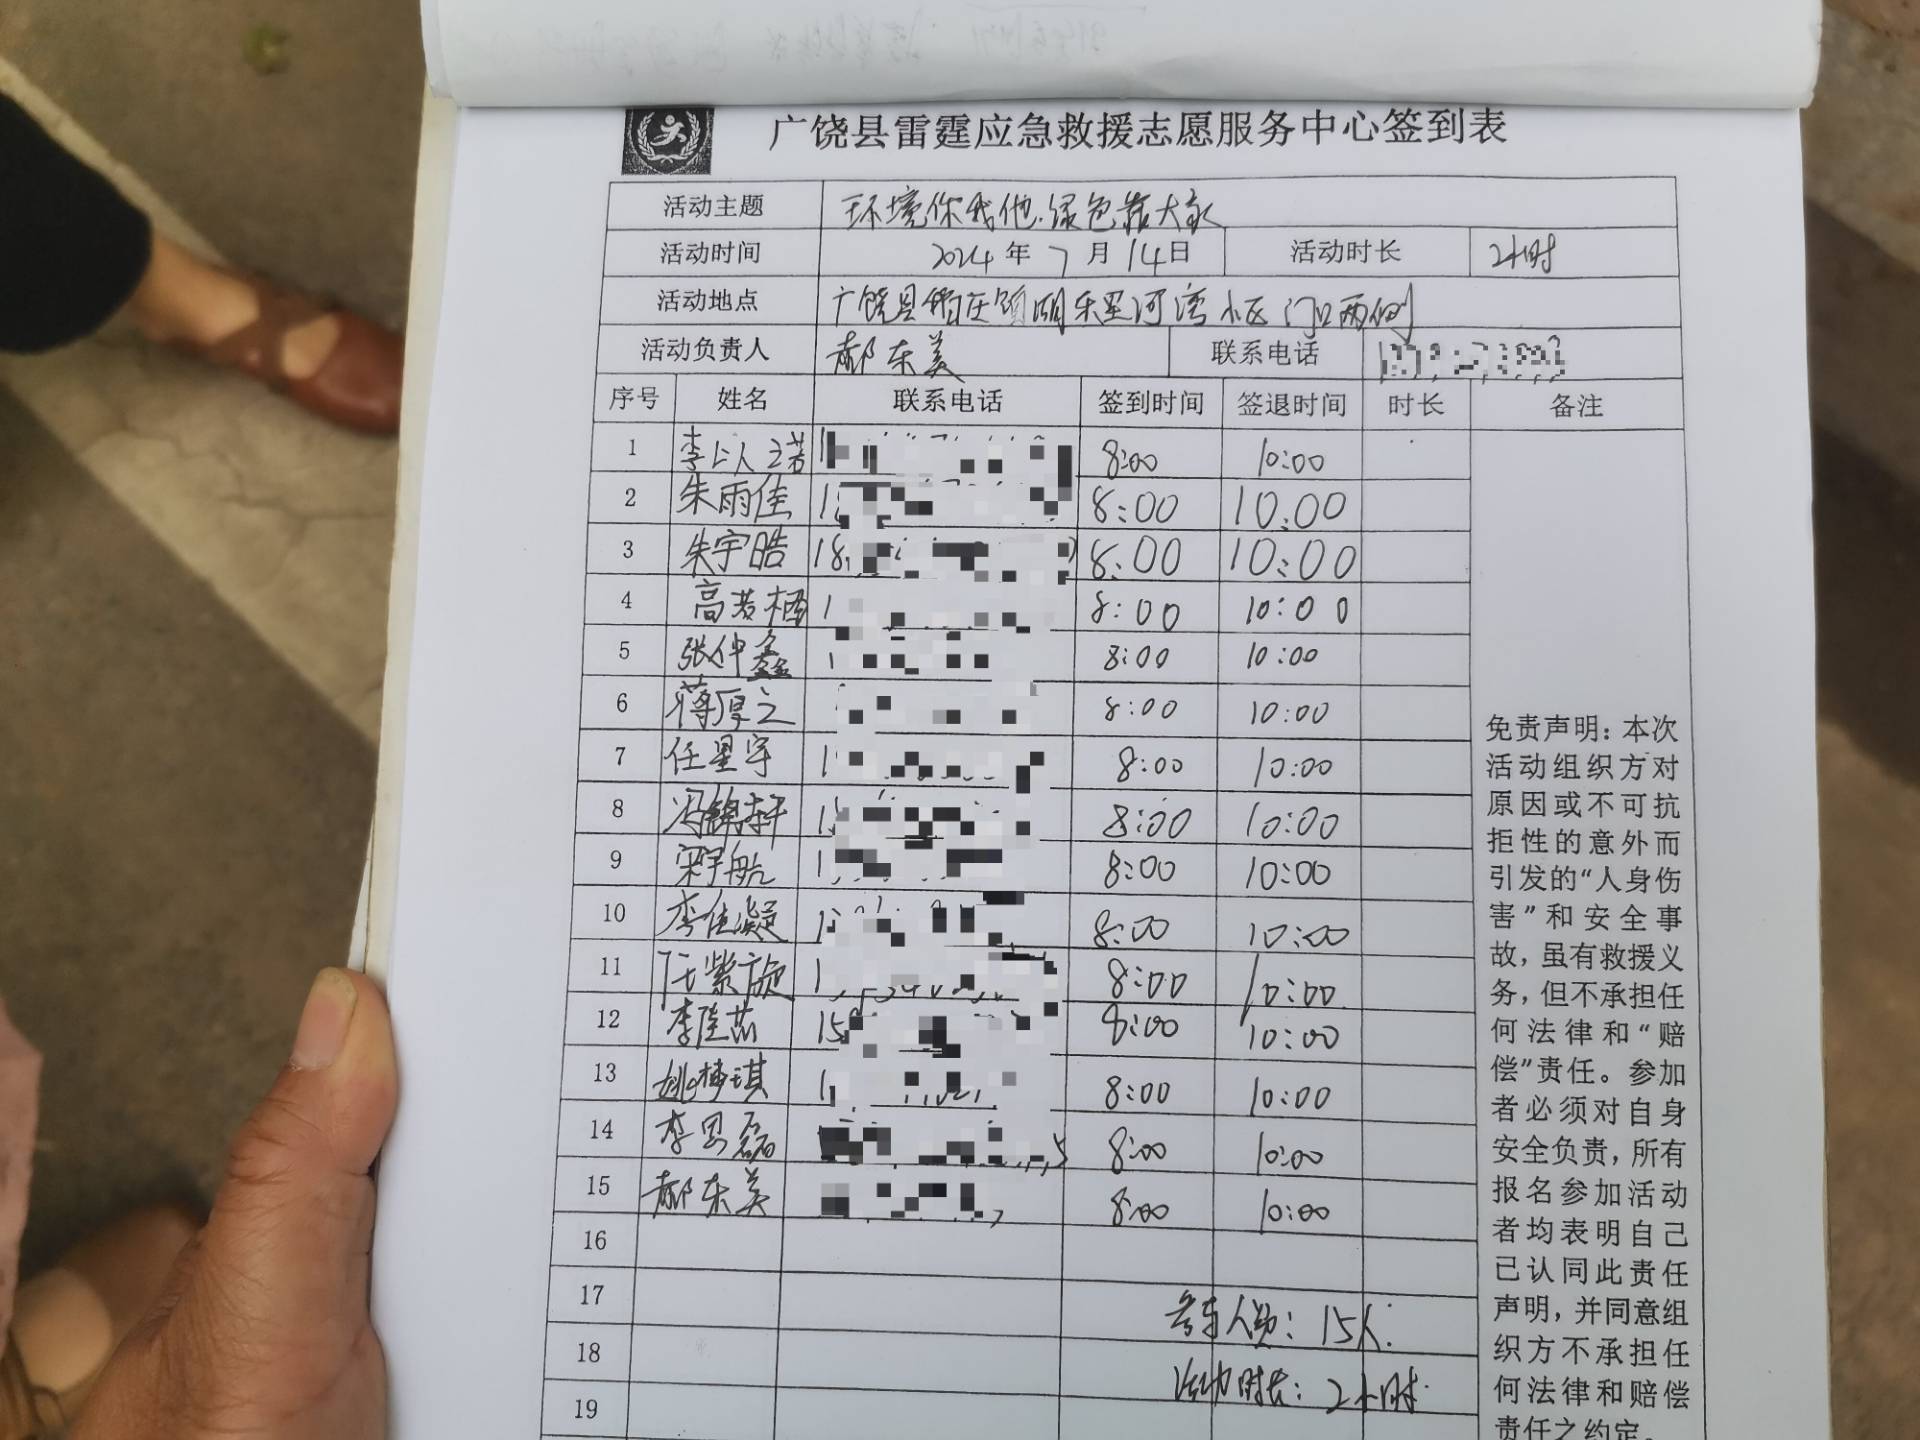 广饶县雷霆应急救援志愿服务中心签到表
活动主题 环境你我他.绿色靠大家
活动时间 2024年7月14日 活动时长 2小时
活动地点 广饶县稻庄镇 河湾小区门口两侧
活动负责人 郝东美 联系电话
序号 姓名 联系电话 签到时间 签退时间 时长 备注
1 李以之若 1 8:00 10:00
2 朱雨佳 1 8:00 10:00
3 朱宇皓 18 8:00 10:00
4 高若栖 1 8:00 10:00
5 张仲鑫 1 8:00 10:00
6 蒋厚之 8:00 10:00
7 任星宇 1 8:00 10:00
8 冯锦轩 1 8:00 10:00
9 宋宇航 1 8:00 10:00
10 李佳凝 1 8:00 10:00
11 任紫旋 1 8:00 10:00
12 李佳芯 15 8:00 10:00
13 姚梦琪 1 8:00 10:00
14 李思磊 5 8:00 10:00
15 郝东美 8:00 10:00
16
17
18
19
参与人员：15人.
活动时长：2小时.
免责声明：本次
活动组织方对
原因或不可抗
拒性的意外而
引发的“人身伤
害”和安全事
故，虽有救援义
务，但不承担任
何法律和“赔
偿”责任。参加
者必须对自身
安全负责，所有
报名参加活动
者均表明自己
已认同此责任
声明，并同意组
织方不承担任
何法律和赔偿
责任之约定。